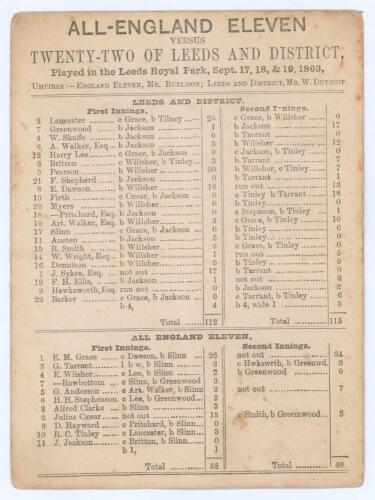 ALL-ENGLAND ELEVEN
VERSUS
TWENTY-TWO OF LEEDS AND DISTRICT,
Played in the Leeds Royal Park, Sept. 17, 18, & 19, 1863,
UMPIRES:—ENGLAND ELEVEN, MR. BURLISON; LEEDS AND DISTRICT, MR. W. DUTHOIT
LEEDS AND DISTRICT.
First Innings. Second Innings.
2 Lancaster ...... c Grace, b Tilney ..... 25 c Grace, b Willsher ...... 0
7 Greenwood ...... b Jackson ...... 1 b Jackson ...... 17
4 W. Skaife ...... b Jackson ...... 0 b Tarrant ...... 0
6 A. Walker, Esq... b Jackson ...... 3 b Willsher ...... 12
12 Harry Lee ...... c Grace, b Jackson ... 0 c Jackson, b Tinley ...... 0
3 Britton ...... b Willsher, b Tinley... 3 b Tarrant ...... 7
5 Pearson ...... b Willsher ...... 30 b Willsher, c Tinley ...... 7
21 F. Shepherd ...... b Jackson ...... 0 b Tarrant ...... 1
8 E. Dawson ...... b Willsher ...... 16 run out ...... 13
13 Firth ...... c Cæsar, b Jackson ... 0 c Tinley b Tarrant ...... 18
20 Myers ...... b Willsher ...... 0 b Tinley ...... 0
18 —Pritchard, Esq. b Jackson ...... 0 b Stepnson, b Tinley ... 1
10 Art. Walker, Esq. b Willsher ...... 3 c Grace, b Tinley ...... 10
17 Slinn ...... c Grace, b Jackson ... 0 b Tinley ...... 0
11 Austen ...... b Jackson ...... 5 b Tinley ...... 0
15 R. Smith ...... b Willsher ...... 3 c Grace, b Tinley ...... 0
14 W. Wright, Esq... b Willsher ...... 1 run out ...... 5
16 Dennison ...... b Willsher ...... 0 b Tinley ...... 9
1 J. Sykes, Esq. ... not out ...... 17 b Tarrant ...... 0
19 F. H. Ellis, ...... b Jackson ...... 1 not out ...... 2
9 Hawksworth, Esq. run out ...... 0 b Jackson ...... 2
22 Barker ...... c Grace, b Jackson ... 0 c Tarrant, b Tinley ...... 6
b 4, 4 b 4, wide 1 5
Total ...... 112 Total ...... 115
ALL ENGLAND ELEVEN,
First Innings. Second Innings.
1 E. M. Grace ...... c Dawson, b Slinn ... 26 not out ...... 34
3 G. Tarrant ...... l b w, b Slinn ...... 2 c Hwkswrth, b Greenwd. 2
4 E. Wilsher ...... c Lee, b Slinn ...... 2 b Greenwood ...... 0
7 —Rowbottom ... c Slinn, b Greenwood 3
5 G. Anderson ...... c Art. Walker, b Slinn 2 not out ...... 7
6 H. H. Stephenson. c Lee, b Greenwood... 3
8 Alfred Clarke ... b Slinn ...... 3
2 Julius Cæsar ...... not out ...... 13 c Smith, b Greenwood... 5
9 D. Hayward ...... c Pritchard, b Slinn... 0
10 R. C. Tinley ...... c Lancaster, b Slinn... 3
11 J. Jackson ...... c Britton, b Slinn ... 0
b 1, 1
Total ...... 58 Total ...... 48